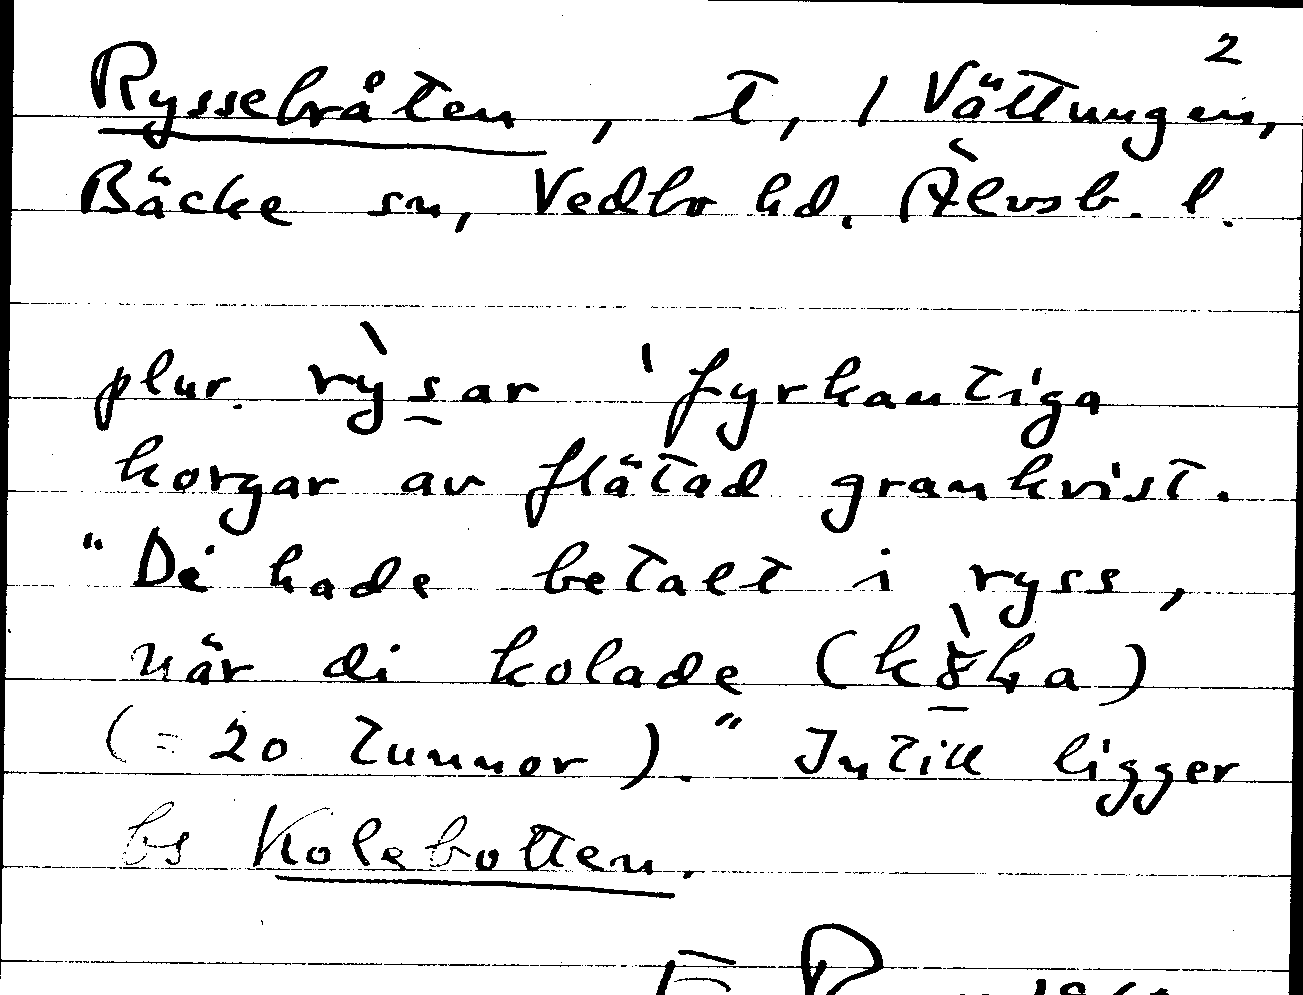 2
Ryssebråten, t, 1 Vättungen,
Bäcke sn, Vedbo hd. Älvsb. l.
plur. rỳs̠ar 'fyrkantiga
korgar av flätad grankvist.
"De hade betalt i ryss,
när di kolade
(= 20 tunnor)." Intill ligger
bs Kolebotten.